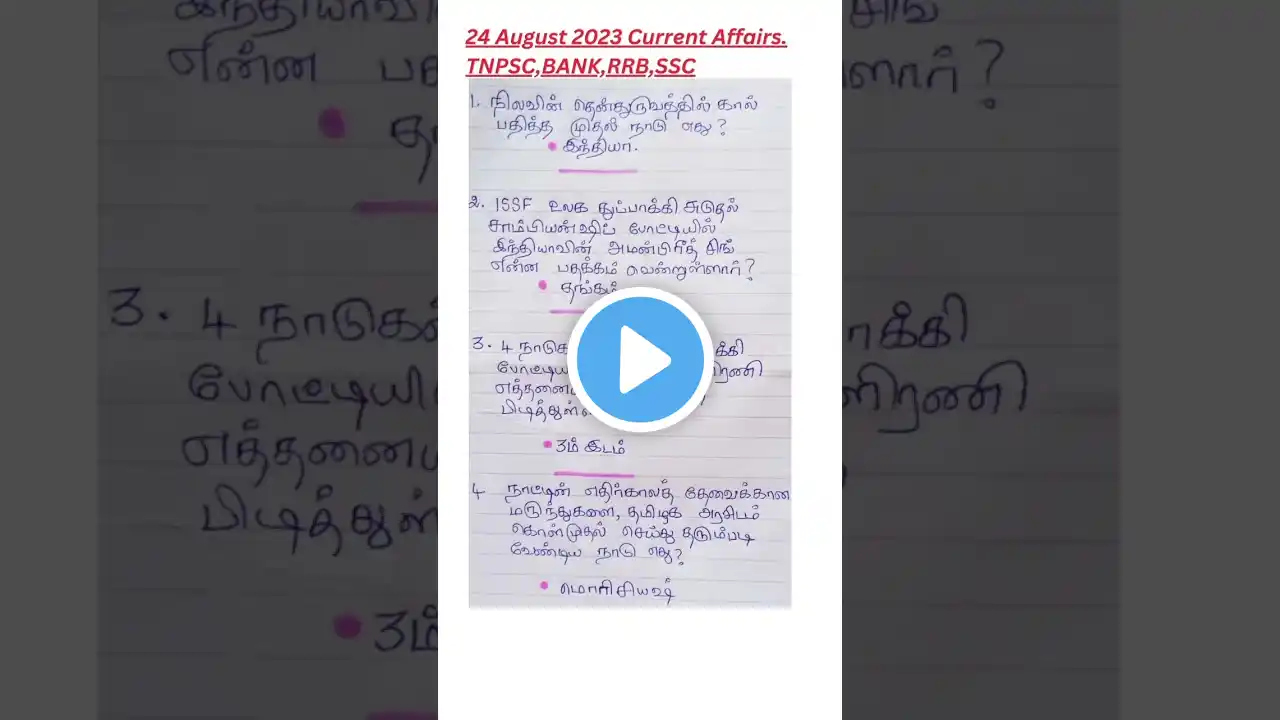 24 August 2023 Current Affairs.
TNPSC,BANK,RRB,SSC
1. நிலவின் தென்துருவத்தில் கால்
பதித்த முதல் நாடு எது?
இந்தியா.
2. ISSF உலக துப்பாக்கி சுடுதல்
சாம்பியன்ஷிப் போட்டியில்
இந்தியாவின் அமன்பிரீத் சிங்
என்ன பதக்கம் வென்றுள்ளார்?
தங்கம்
3. 4
எத்தனை
3ம் இடம்
4 நாட்டின் எதிர்காலத் தேவைக்கான
மருந்துகளை, தமிழக அரசிடம்
கொள்முதல் செய்து தரும்படி
வேண்டிய நாடு எது?
மொரிசியஷ்